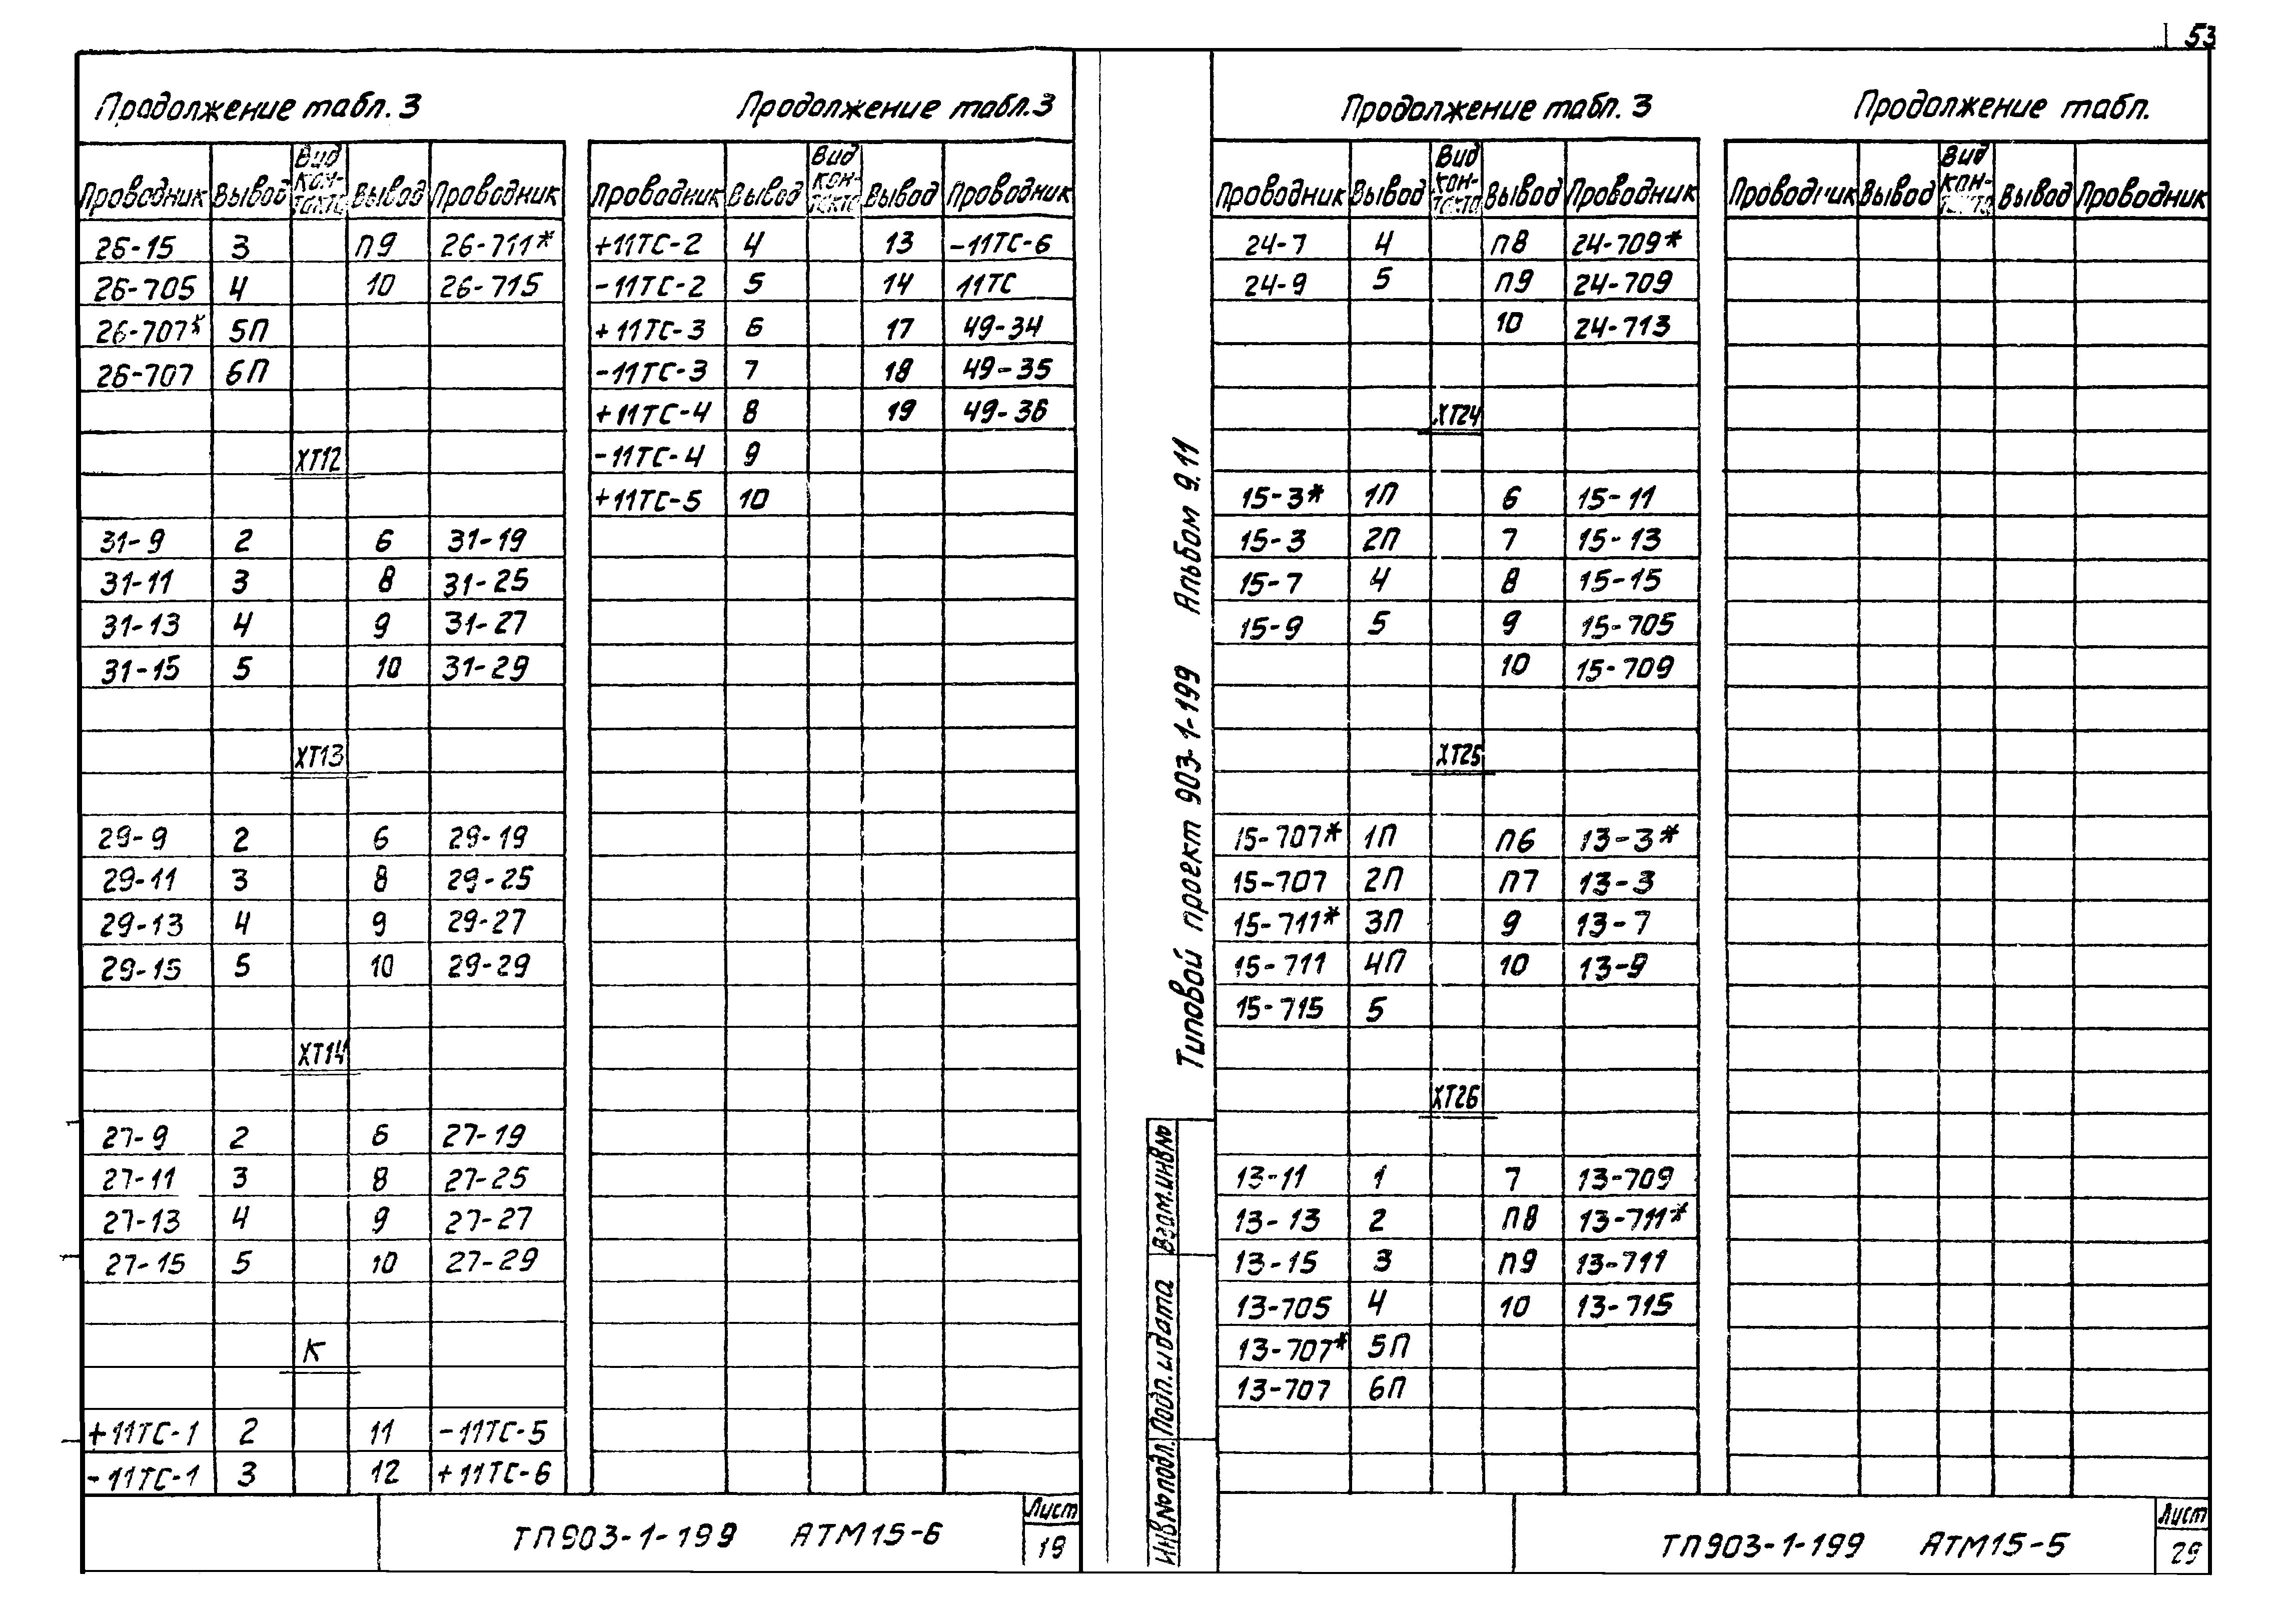 53
Продолжение табл. 3
Проводник Вывод Вид кон-такта Вывод Проводник
26-15 3 П9 26-711*
26-705 4 10 26-715
26-707* 5П
26-707 6П
ХТ12
31-9 2 6 31-19
31-11 3 8 31-25
31-13 4 9 31-27
31-15 5 10 31-29
ХТ13
29-9 2 6 29-19
29-11 3 8 29-25
29-13 4 9 29-27
29-15 5 10 29-29
ХТ14
27-9 2 6 27-19
27-11 3 8 27-25
27-13 4 9 27-27
27-15 5 10 27-29
К
+11ТС-1 2 11 -11ТС-5
-11ТС-1 3 12 +11ТС-6
Продолжение табл.3
Проводник Вывод Вид кон-такта Вывод Проводник
+11ТС-2 4 13 -11ТС-6
-11ТС-2 5 14 11ТС
+11ТС-3 6 17 49-34
-11ТС-3 7 18 49-35
+11ТС-4 8 19 49-36
-11ТС-4 9
+11ТС-5 10
ТП903-1-199 АТМ15-6
Лист
19
Типовой проект 903-1-199 Альбом 9.11
Инв№подл. Подп. и дата Взам.инв№
Продолжение табл. 3
Проводник Вывод Вид кон-такта Вывод Проводник
24-7 4 П8 24-709*
24-9 5 П9 24-709
10 24-713
ХТ24
15-3* 1П 6 15-11
15-3 2П 7 15-13
15-7 4 8 15-15
15-9 5 9 15-705
10 15-709
ХТ25
15-707* 1П П6 13-3*
15-707 2П П7 13-3
15-711* 3П 9 13-7
15-711 4П 10 13-9
15-715 5
ХТ26
13-11 1 7 13-709
13-13 2 П8 13-711*
13-15 3 П9 13-711
13-705 4 10 13-715
13-707* 5П
13-707 6П
Продолжение табл.
Проводник Вывод Вид кон-такта Вывод Проводник
ТП903-1-199 АТМ15-5
Лист
29